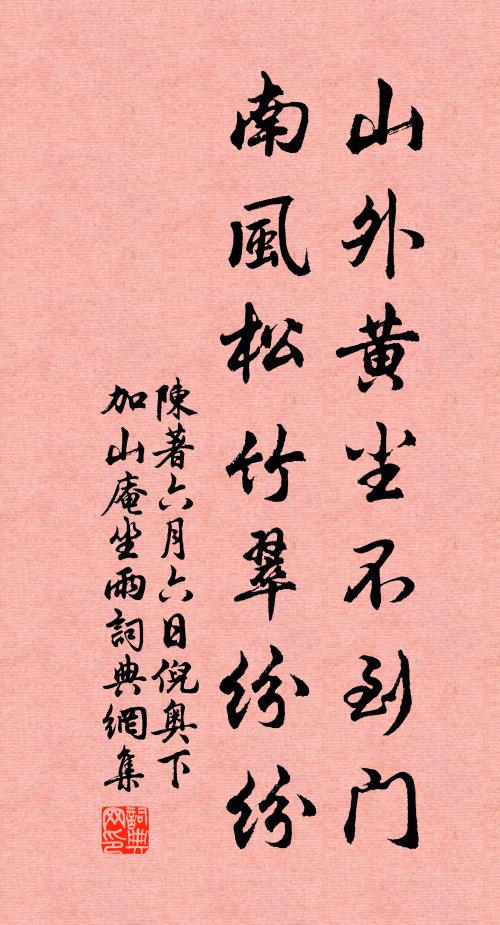 山外黄尘不到门
南風松竹翠紛紛
陳著六月六日倪奥下
加山庵坐雨詞典網集
詞典网印